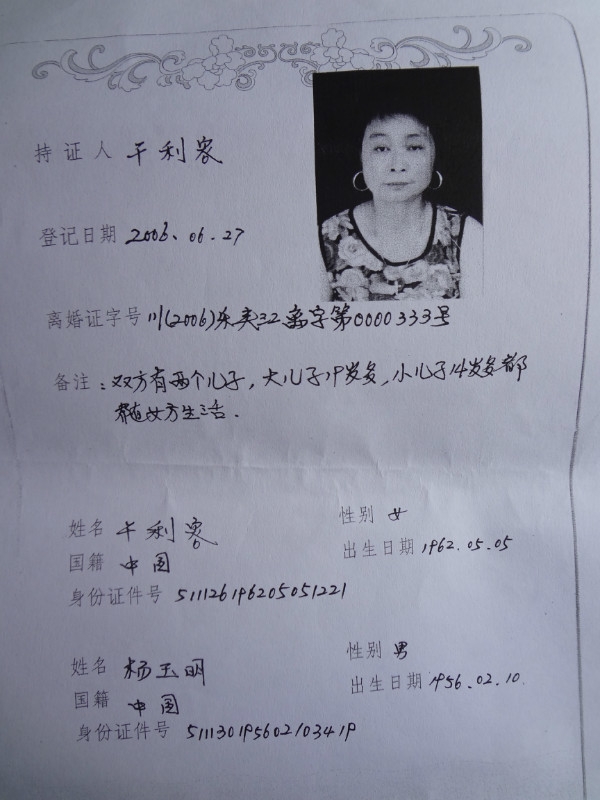 持证人 干利容
登记日期 2006.06.27
离婚证字号 川(2006)东夹32离字第0000333号
备注：双方有两个儿子，大儿子19岁多，小儿子14岁多都
随女方生活.
姓名 干利容 性别 女
国籍 中国 出生日期 1962.05.05
身份证件号 511126196205051221
姓名 杨玉明 性别 男
国籍 中国 出生日期 1956.02.10.
身份证件号 511130195602103419